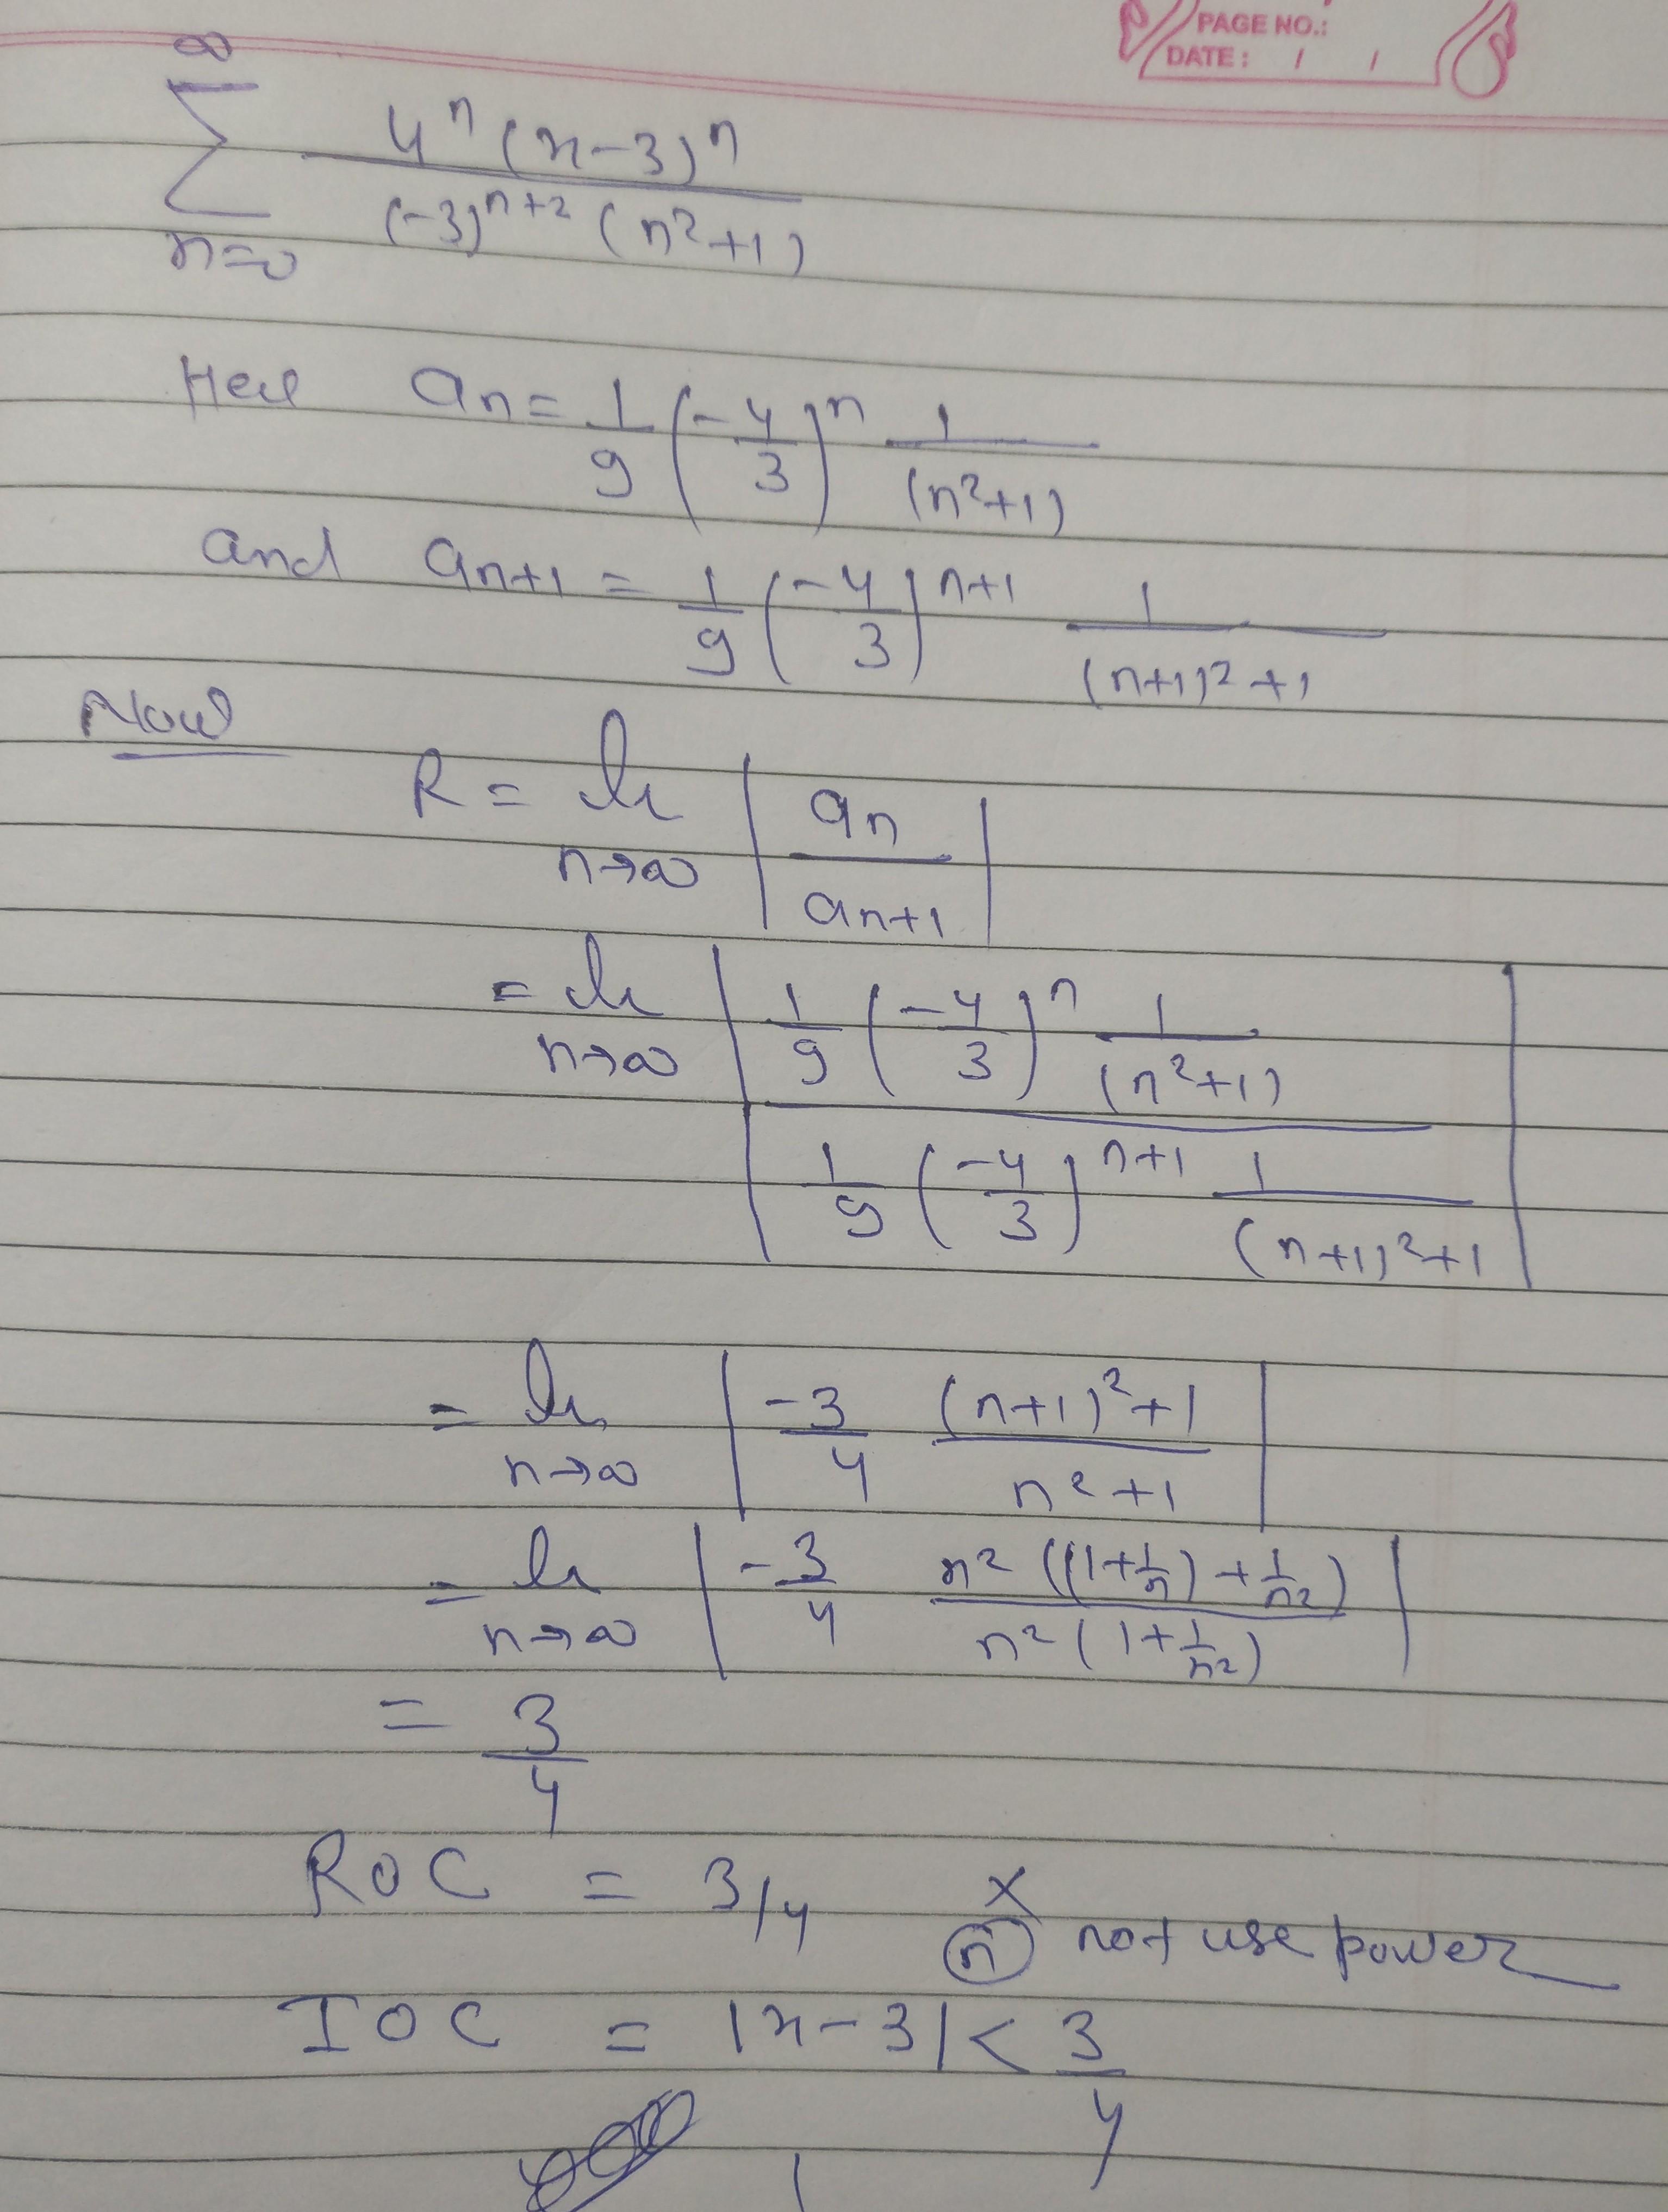 PAGE NO.:
DATE: / /
∞
∑ 4ⁿ(x-3)ⁿ / (-3)ⁿ⁺² (n²+1)
n=0
Here an = 1/9 (-4/3)ⁿ 1/(n²+1)
and an+1 = 1/9 (-4/3)ⁿ⁺¹ 1/(n+1)²+1
Now
R = lt n→∞ | an / an+1 |
= lt n→∞ | 1/9 (-4/3)ⁿ 1/(n²+1) / 1/9 (-4/3)ⁿ⁺¹ 1/(n+1)²+1 |
= lt n→∞ | -3/4 (n+1)²+1 / n²+1 |
= lt n→∞ | -3/4 n²((1+1/n)+1/n²) / n²(1+1/n²) |
= 3/4
ROC = 3/4 x
n not use power
IOC = |x-3| < 3/4